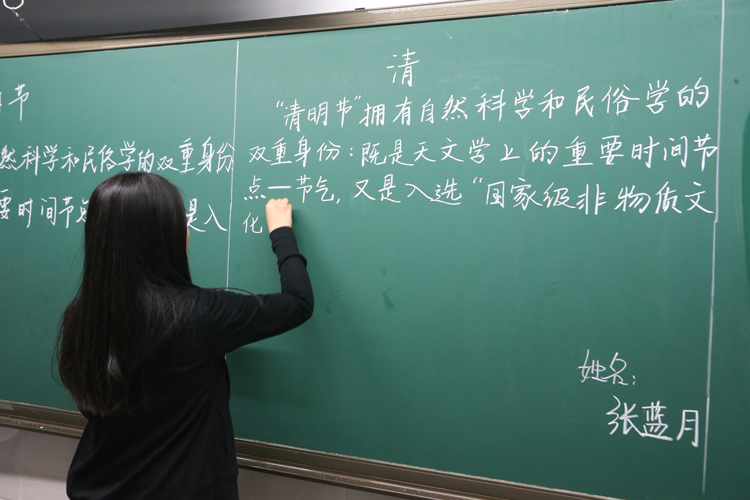 节
然科学和民俗学的双重身份
要时间节
是入
清
“清明节”拥有自然科学和民俗学的
双重身份：既是天文学上的重要时间节
点—节气，又是入选“国家级非物质文
化
姓名：
张蓝月